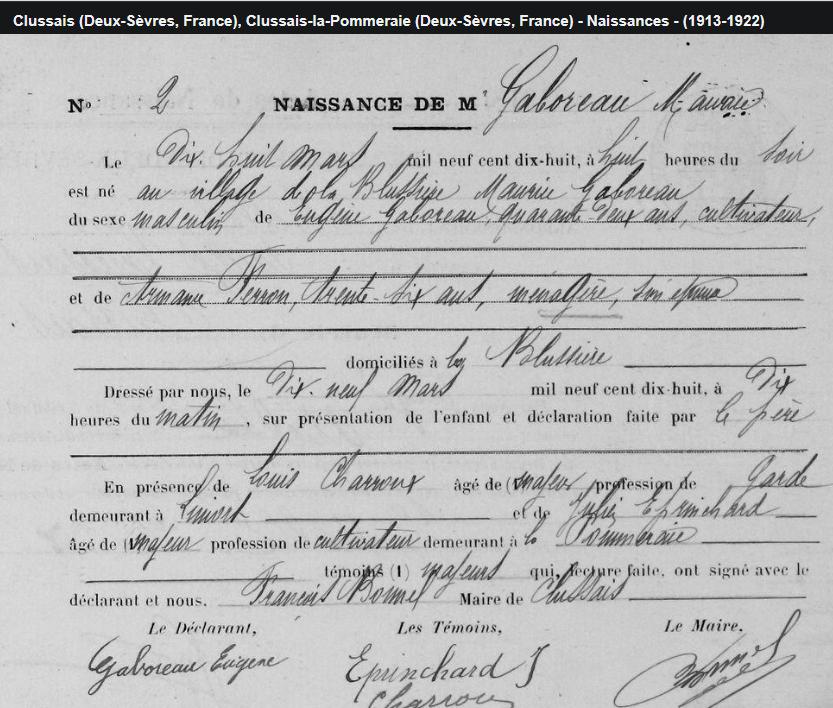 Clussais (Deux-Sèvres, France), Clussais-la-Pommeraie (Deux-Sèvres, France) - Naissances - (1913-1922)
N° 2 NAISSANCE DE M Gaboreau Maurice
Le Dix huit mars mil neuf cent dix-huit, à huit heures du soir
est né au village de la Blussière Maurice Gaboreau
du sexe masculin de Eugène Gaboreau quarante deux ans, cultivateur,
et de Armanie Ferron, trente-six ans, ménagère, son épouse
domiciliés à la Blussière
Dressé par nous, le Dix-neuf mars mil neuf cent dix-huit, à Dix
heures du matin, sur présentation de l'enfant et déclaration faite par le père
En présence de Louis Charroux âgé de (1) majeur profession de Garde
demeurant à et de Jules Eprinchard
âgé de (1) majeur profession de cultivateur demeurant à la Pommeraie
témoins (1) majeurs qui, lecture faite, ont signé avec le
déclarant et nous. François Bonnel Maire de Clussais
Le Déclarant, Les Témoins, Le Maire.
Gaboreau Eugene Eprinchard J
Charroux